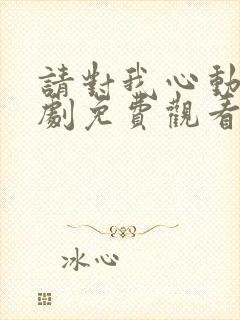 請對我心動
劇免費觀看
冰心